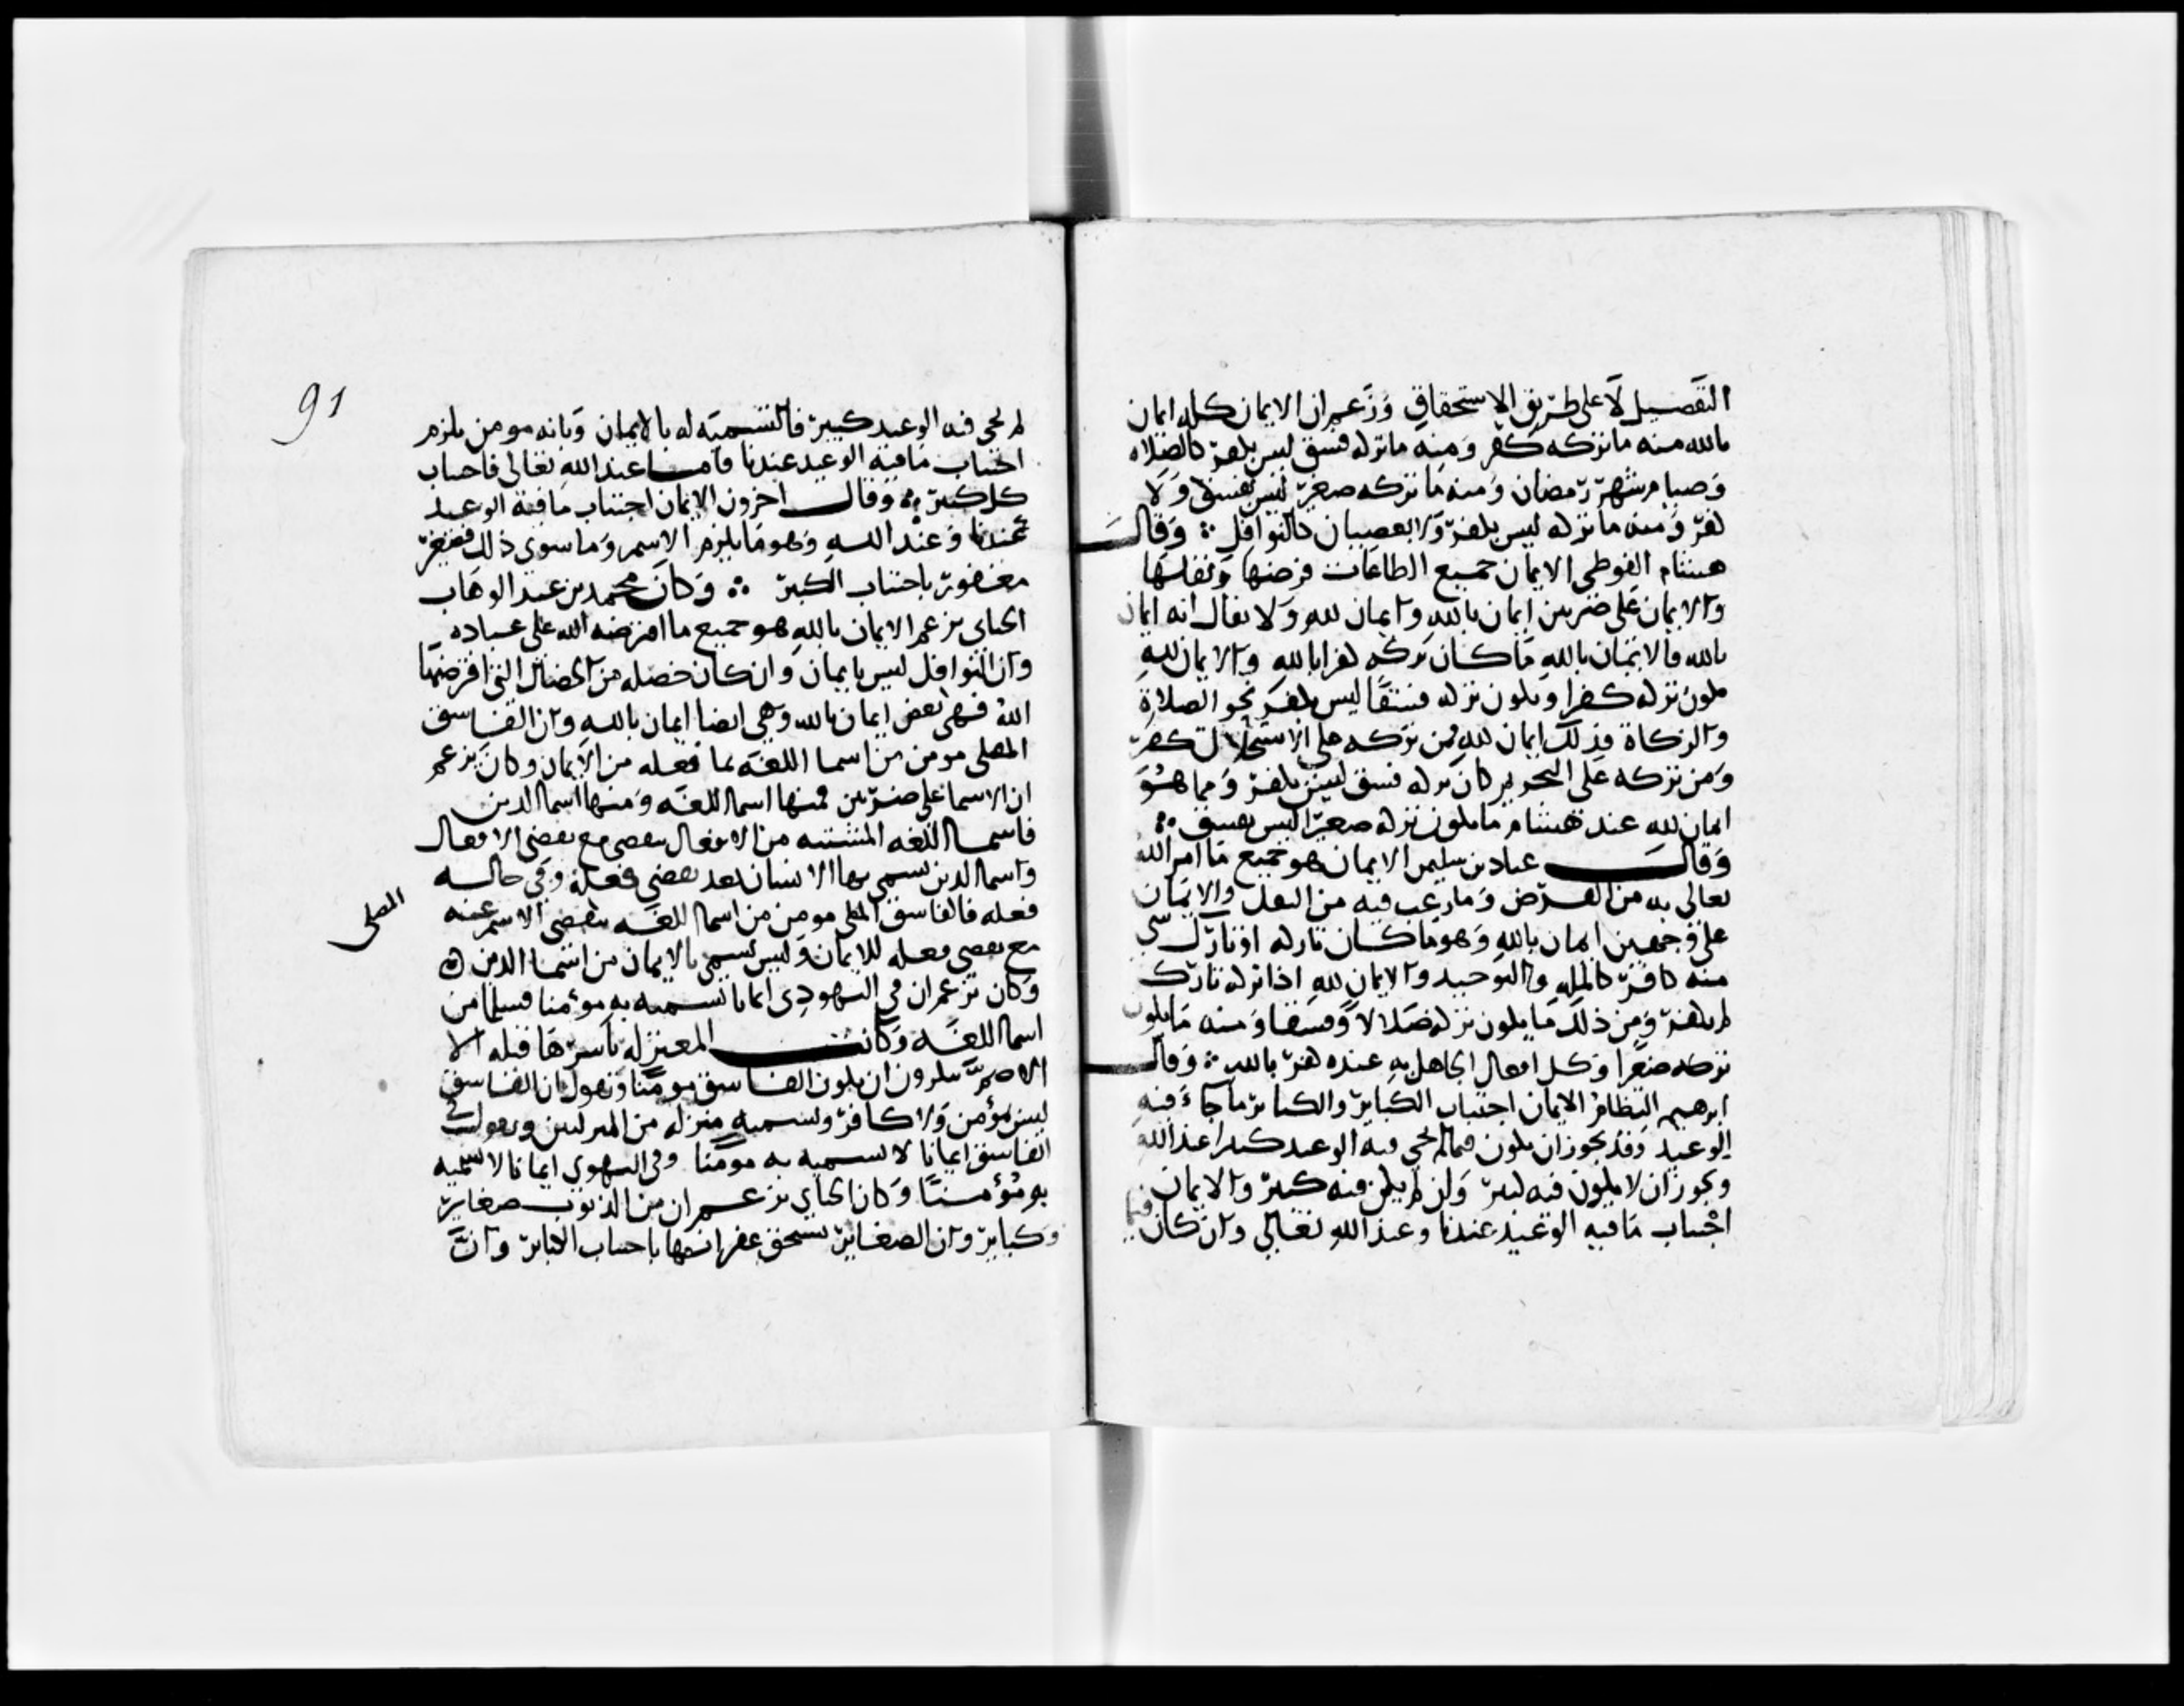 التفصيل لا على طريق الاستحقاق وزعم ان الايمان كله ايمان
بالله منه ما تركه كفر ومنه ما تركه فسق ليس بكفر كالصلاه
وصيام شهر رمضان ومنه ما تركه صغير ليس بفسق ولا
كفر ومنه ما تركه ليس بكفر ولا بعصيان كالنوافل ؞ وقال
هشام الفوطي الايمان جميع الطاعات فرضها ونفلها
والايمان على ضربين ايمان بالله وايمان لله ولا يقال انه ايمان
بالله فالايمان بالله ما كان تركه كفرا بالله والايمان لله
يكون تركه كفرا ويكون تركه فسقا ليس بكفر نحو الصلاة
والزكاة فذلك ايمان لله فمن تركه على الاستحلال كفر
ومن تركه على التحريم كان تركه فسق ليس بكفر ومما هو
ايمان لله عند هشام ما يكون تركه صغيرا ليس بفسق ؞
وقال عباد بن سليمن الايمان هو جميع ما امر الله
تعالى به من الفرض وما رغب فيه من النفل والايمان
على وجهين ايمان بالله وهو ما كان تاركه او تارك شي
منه كافر كالمله والتوحيد والايمان لله اذا تركه تارك
لم يكفر ومن ذلك ما يكون تركه ضلالا وفسقا ومنه ما يكون
تركه صغيرا وكل افعال الجاهل به عنده كفر بالله ؞ وقال
ابرهيم النظام الايمان اجتناب الكباير والكباير ما جاء فيه
الوعيد وقد يجوز ان يكون فيما لم يجي فيه الوعيد كبيرا عند الله
ويجوز ان لا يكون فيه كبير ولن لم يكن فيه كبير والايمان
اجتناب ما فيه الوعيد عندنا وعند الله تعالى وان كان
فيما
91
لم يجي فيه الوعيد كبير فالتسمية له بالايمان وبانه مومن يلزم
اجتناب ما فيه الوعيد عندنا فاما عند الله تعالى فاجتناب
كل كبير ؞ وقال اخرون الايمان اجتناب ما فيه الوعيد
عندنا وعند الله وهو ما يلزم الاسم وما سوى ذلك فصغير
مغفور باجتناب الكبير ؞ وكان محمد بن عبد الوهاب
الجباي يزعم الايمان بالله هو جميع ما افترضه الله على عباده
وان النوافل ليس بايمان وان كان خصله من الخصال التي افترضها
الله فهي بعض ايمان بالله وهي ايضا ايمان بالله وان الفاسق
الملى مومن من اسما اللغة بما فعله من الايمان وكان يزعم
ان الاسما على ضربين فمنها اسما اللغه ومنها اسما الدين
فاسما اللغه المشتقه من الافعال تتقضى مع تقضى الافعال
واسما الدين تسمى بها الانسان بعد تقضى فعله وفي حاله
فعله فالفاسق الملى مومن من اسما اللغه يتقضى الاسم عنه
الملى
مع تقضى فعله للايمان وليس تسمى بالايمان من اسما الدين
وكان يزعم ان في اليهودى ايمانا تسميه به مومنا مسلما من
اسما اللغه وكانت المعتزله باسرها قبله الا
الاصم ينكرون ان يكون الفاسق مومنا وتقول ان الفاسق
ليس بمؤمن ولا كافر وتسميه منزله من المنزلتين ويقول في
الفاسق ايمانا لا تسميه به مومنا وفي اليهودى ايمانا لا تسميه
به مؤمنا وكان الجباي يزعم ان من الذنوب صغاير
وكباير وان الصغاير تستحق غفرانها باجتناب الكباير وان